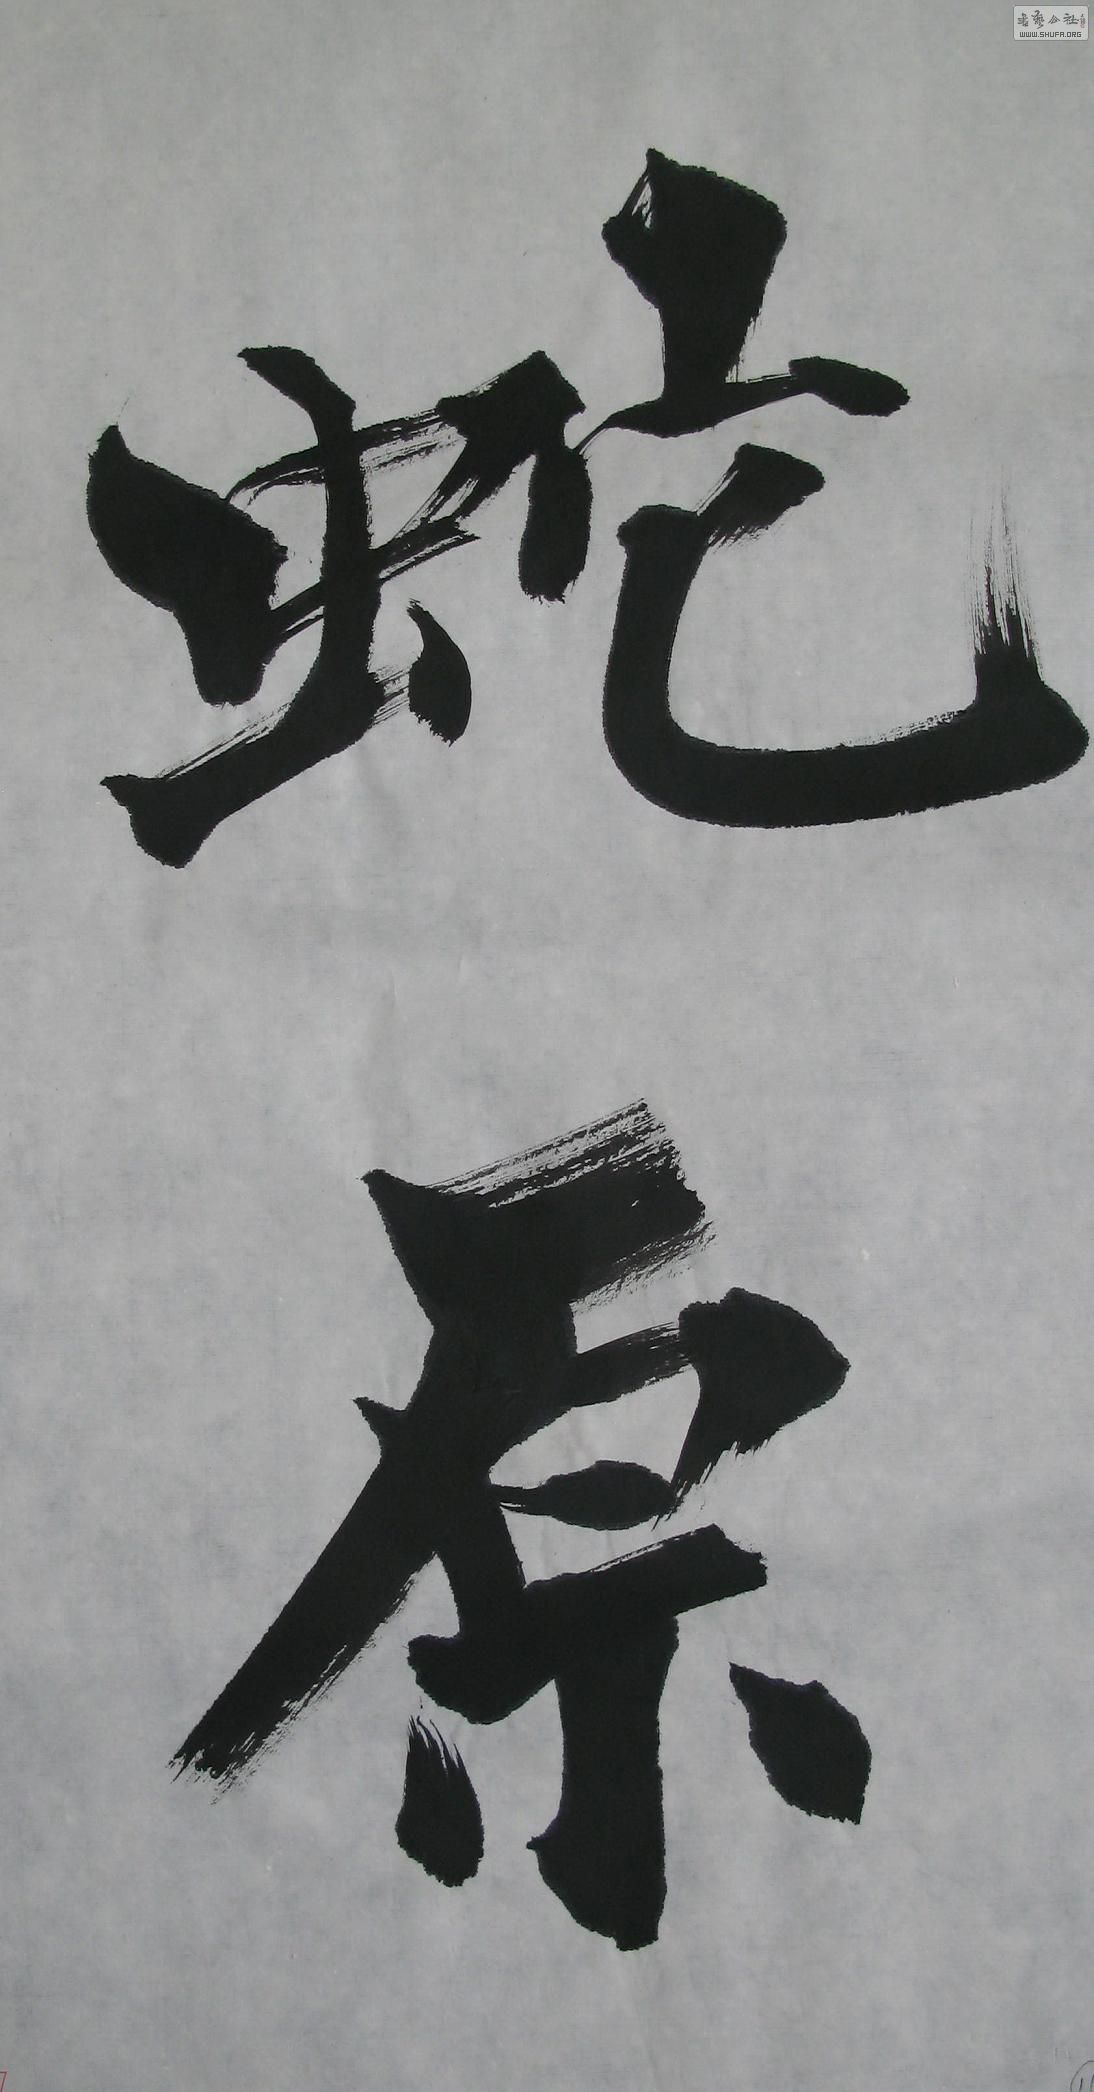 蛇
原
书艺公社
WWW.SHUFA.ORG